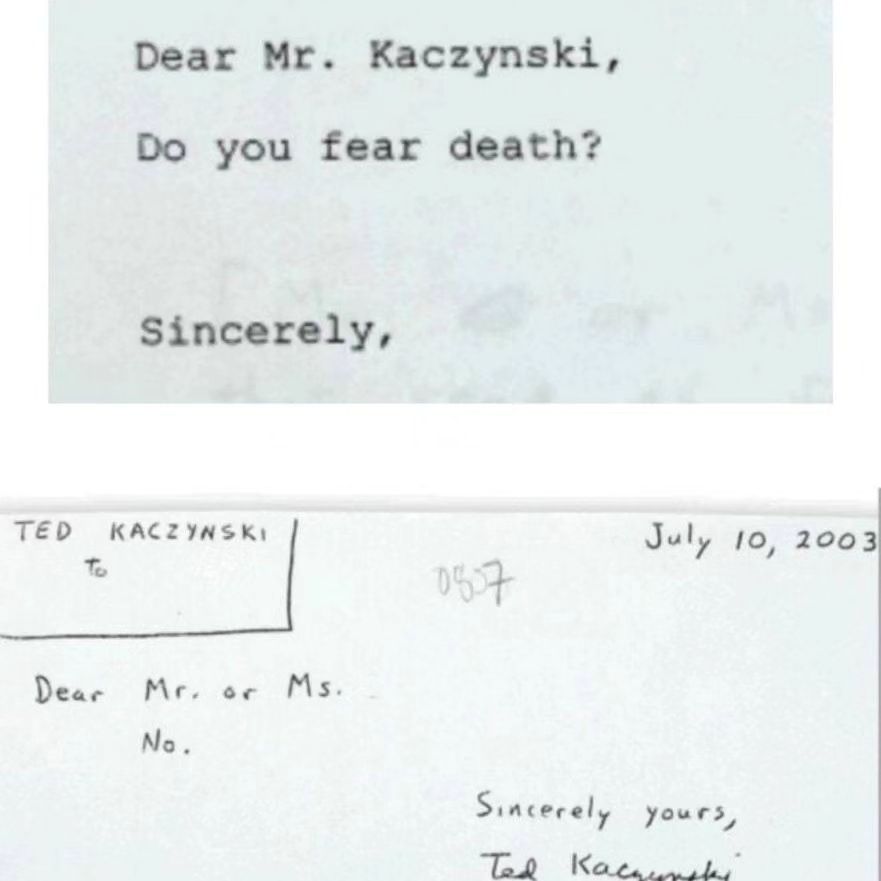 Dear Mr. Kaczynski,
Do you fear death?
Sincerely,
TED KACZYNSKI
To
July 10, 2003
Dear Mr. or Ms.
No.
Sincerely yours,
Ted Kaczynski